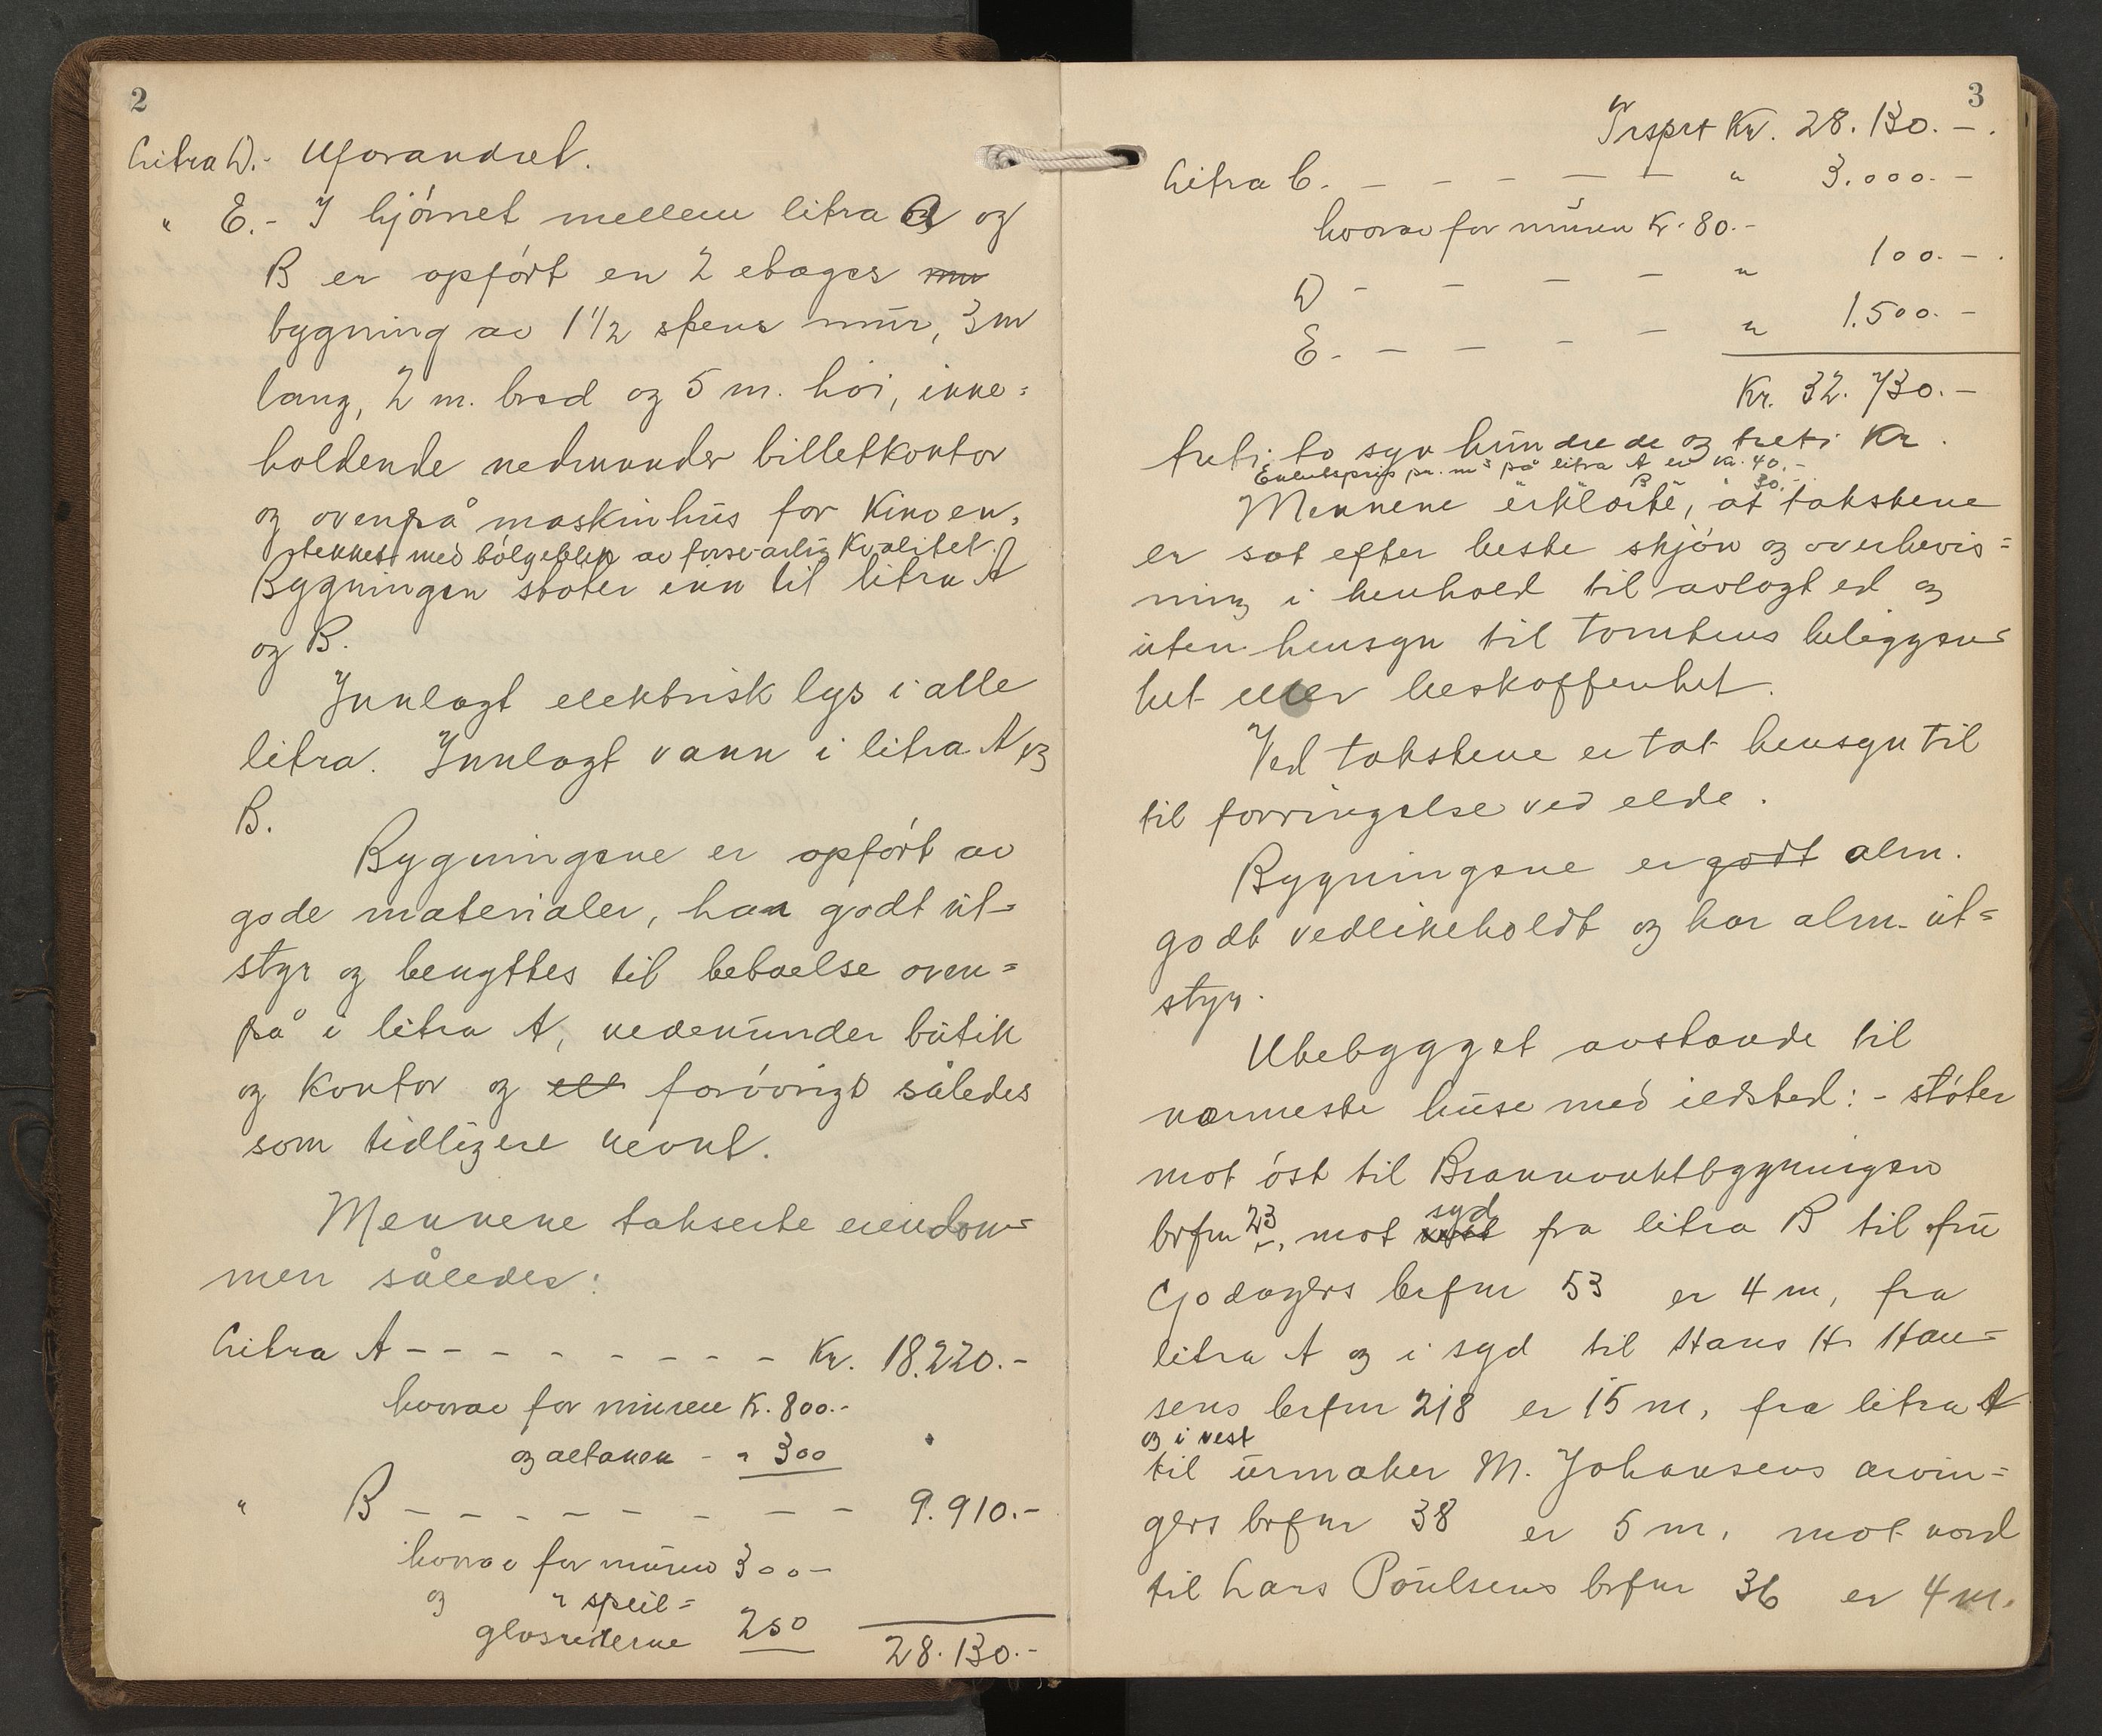 2
Litra D.- Uforandret.
" E.- I hjørnet mellem litra A og
B er opført en 2 etages mu
bygning av 1½ stens mur, 3 m
lang, 2 m. bred og 5 m. høi, inne=
holdende nedunnder billetkontor
og ovenpå maskinhus for Kinoen,
tekket med bølgeblikk av forsvarlig Kvalitet.
Bygningen støter inn til litra A
og B.
Innlagt elektrisk lys i alle
litra. Innlagt vann i litra A og
B.
Bygningene er opført av
gode materialer, har godt ut=
styr og benyttes til beboelse oven=
på i litra A, nedenunder butik
og Kontor og ell forøvrigt således
som tidligere nevnt.
Mennene takserte eiendom=
men således:
Litra A - - - - - - - - Kr. 18.220.-
hvorav for muren K. 800.-
og altanen - " 300
" B - - - - - - - - 9.910.-
hvorav for muren 300-
og " speil=
glasruterne 250
28.130.-
3
Trsprt Kr. 28.130.-.
Litra C. - - - - - " 3.000.-
hvorav for muren Kr. 80.-
D - - - - " 100.-.
E. - - - - " 1.500.-
Kr. 32.730.-
treti to syv hundrede og treti Kr.
Enhetspris pr. m³ på litra A er Kr. 40.-
" " " B " 30.-
Mennene erklærte, at takstene
er sat efter beste skjøn og overbevis=
ning i henhold til avlagt ed og
uten hensyn til Tomtens beliggen=
het eller beskaffenhet.
Ved takstene er tat hensyn til
til forringelse ved elde.
Bygningene er godt alm.
godt vedlikeholdt og har alm. ut=
styr.
Ubebygget avstande til
nærmeste huse med ildsted: - støter
mot øst til Brannvaktbygningen
brfnr 23, mot vest syd fra litra B til fru
Godagers brfnr 53 er 4 m, fra
litra A og i syd til Hans H. Han=
sens brfnr 218 er 15 m, fra litra A
og i vest
til urmaker M. Johansens arvin=
gers brfnr 38 er 5 m, mot nord
til Lars Poulsens brfnr 36 er 4 m.